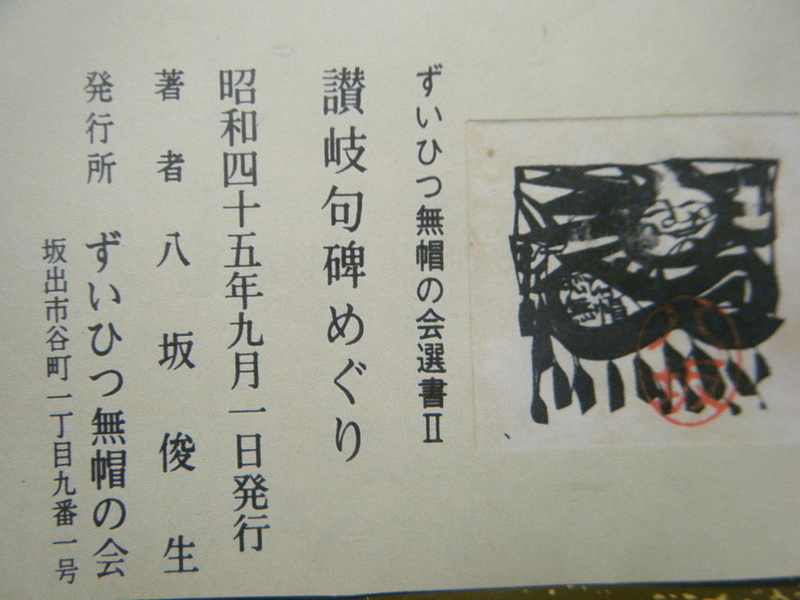 ずいひつ無帽の会選書Ⅱ
讃岐句碑めぐり
昭和四十五年九月一日発行
著者 八坂俊生
発行所 ずいひつ無帽の会
坂出市谷町一丁目九番一号